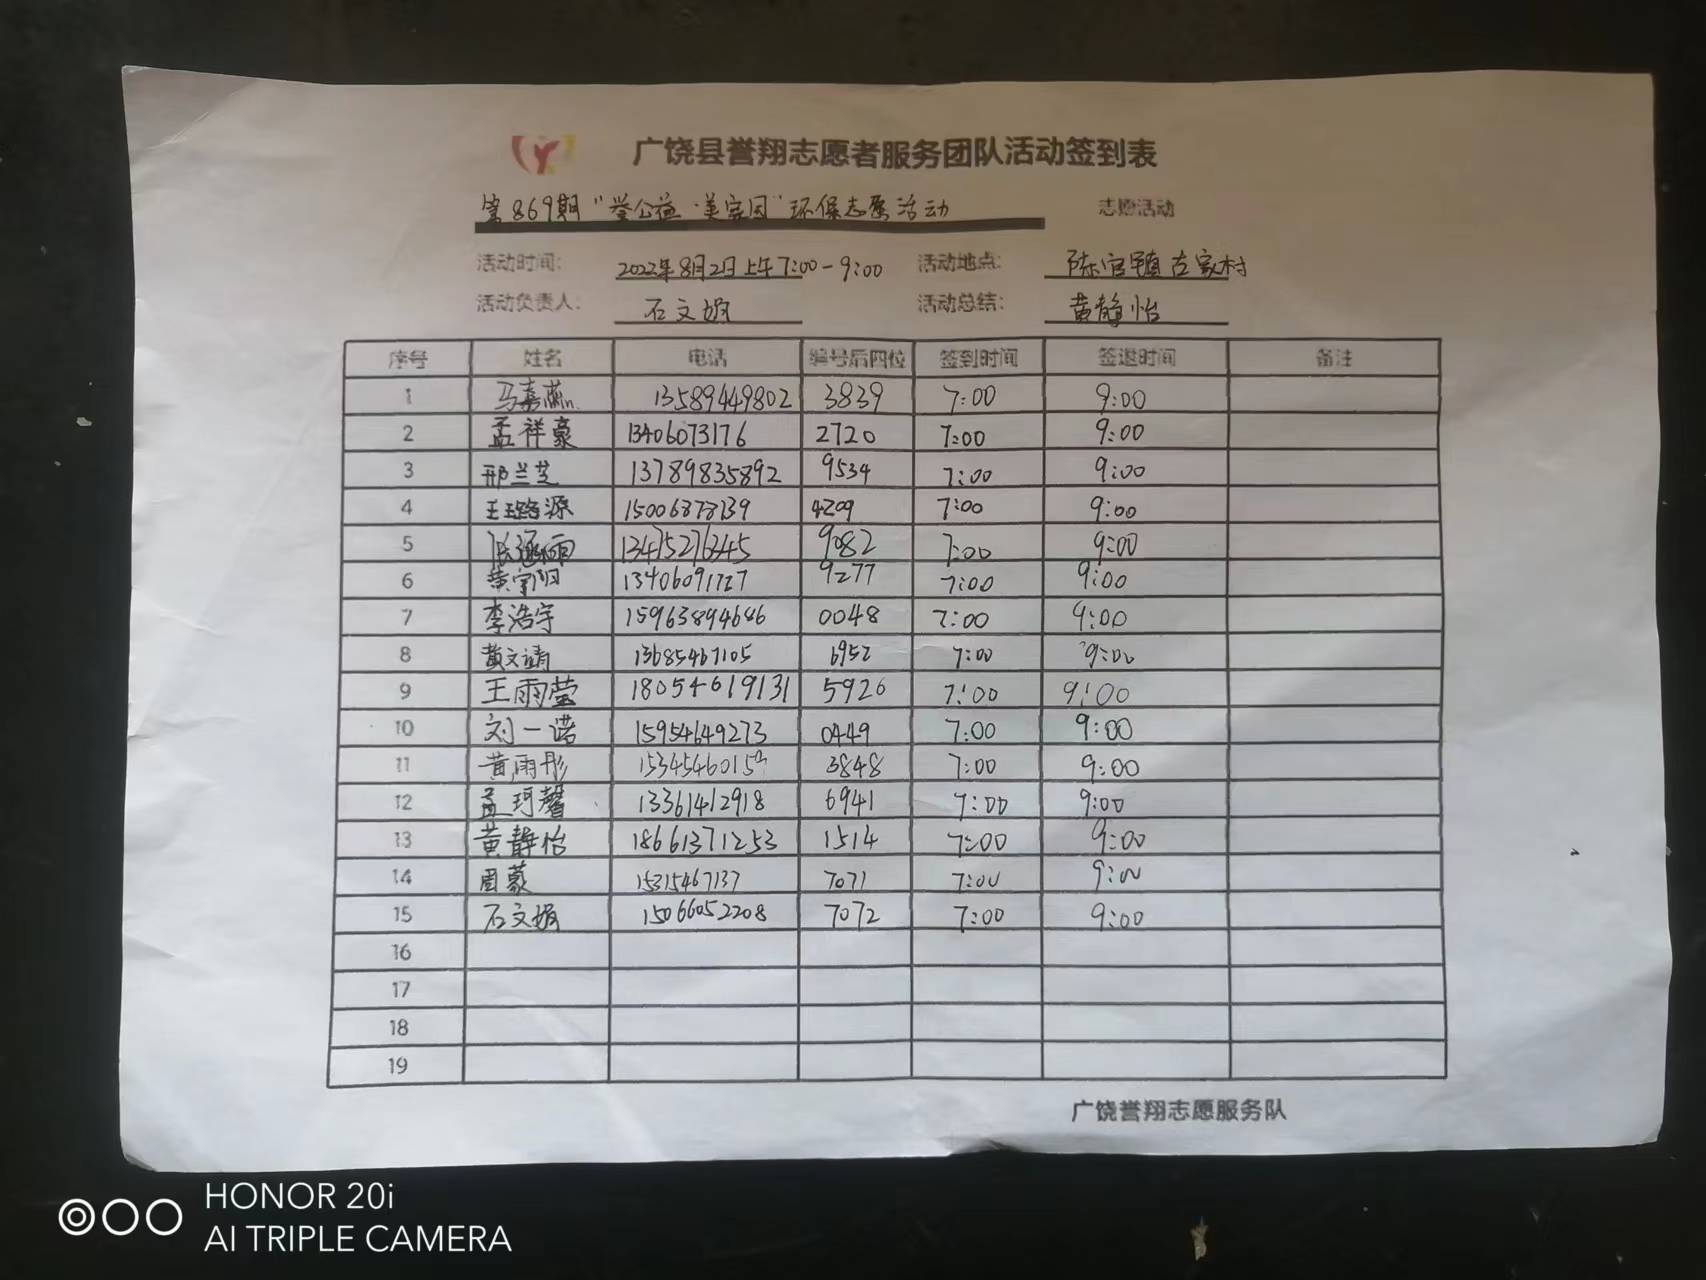 广饶县誉翔志愿者服务团队活动签到表
第869期"誉公益·美家园"环保志愿活动 志愿活动
活动时间: 2022年8月2日上午7:00-9:00 活动地点: 陈官镇古家村
活动负责人: 石文娟 活动总结: 黄静怡
序号 姓名 电话 编号后四位 签到时间 签退时间 备注
1 马嘉 13589449802 3839 7:00 9:00
2 孟祥豪 13406073176 2720 7:00 9:00
3 邢兰芝 13789835892 9534 7:00 9:00
4 王璐源 15006878139 4209 7:00 9:00
5 张涵雨 9082 7:00 9:00
6 黄宇阳 13406091727 9277 7:00 9:00
7 李浩宇 15963894686 0048 7:00 9:00
8 黄文靖 13685467105 6952 7:00 9:00
9 王雨莹 18054619131 5926 7:00 9:00
10 刘一诺 15954649273 0449 7:00 9:00
11 黄雨彤 3848 7:00 9:00
12 孟珂馨 13361412918 6941 7:00 9:00
13 黄静怡 18661371253 1514 7:00 9:00
14 周蒙 15315467137 7071 7:00 9:00
15 石文娟 15066052208 7072 7:00 9:00
16
17
18
19
广饶誉翔志愿服务队
HONOR 20i
AI TRIPLE CAMERA